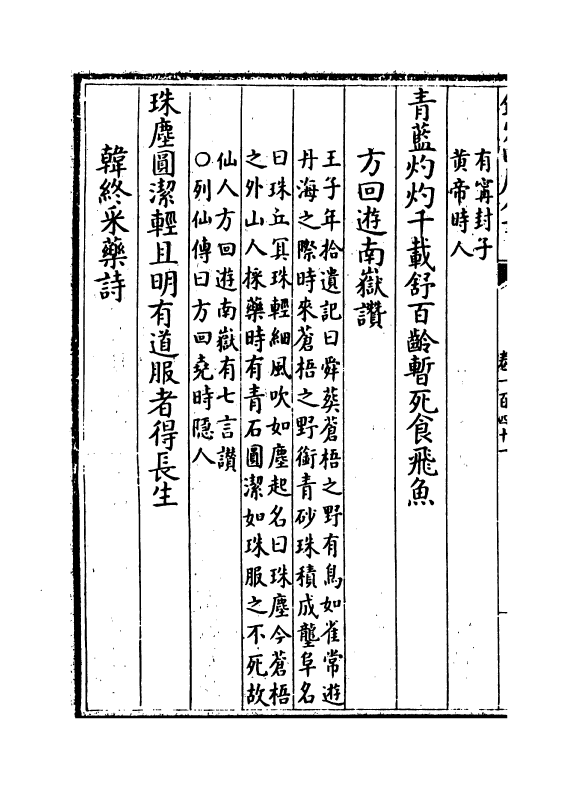 有寗封子
黄帝時人
青藍灼灼千載舒百齡暫死食飛魚
方回遊南嶽讚
王子年拾遺記曰舜葬蒼梧之野有鳥如雀常遊
丹海之際時來蒼梧之野銜青砂珠積成壟阜名
曰珠丘其珠輕細風吹如塵起名曰珠塵今蒼梧
之外山人採藥時有青石圓潔如珠服之不死故
仙人方回遊南嶽有七言讚
○列仙傳曰方回堯時隱人
珠塵圓潔輕且明有道服者得長生
韓終采藥詩
卷一百四十一